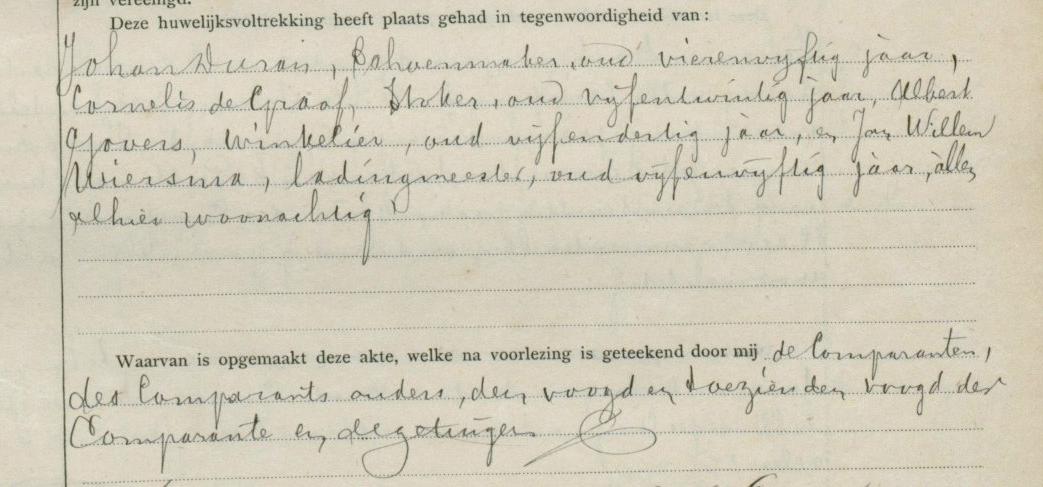 zijn vereenigd.
Deze huwelijksvoltrekking heeft plaats gehad in tegenwoordigheid van:
Johan Durain, Schoenmaker, oud vierenvijftig jaar,
Cornelis de Graaf, Stoker, oud vijfentwintig jaar, Albert
Govers, winkelier, oud vijfendertig jaar, en Jan Willem
Wiersma, ladingmeester, oud vijfenvijftig jaar, allen
alhier woonachtig
Waarvan is opgemaakt deze akte, welke na voorlezing is geteekend door mij de Comparanten,
des Comparants ouders, den voogd en toezienden voogd der
Comparante en de getuigen